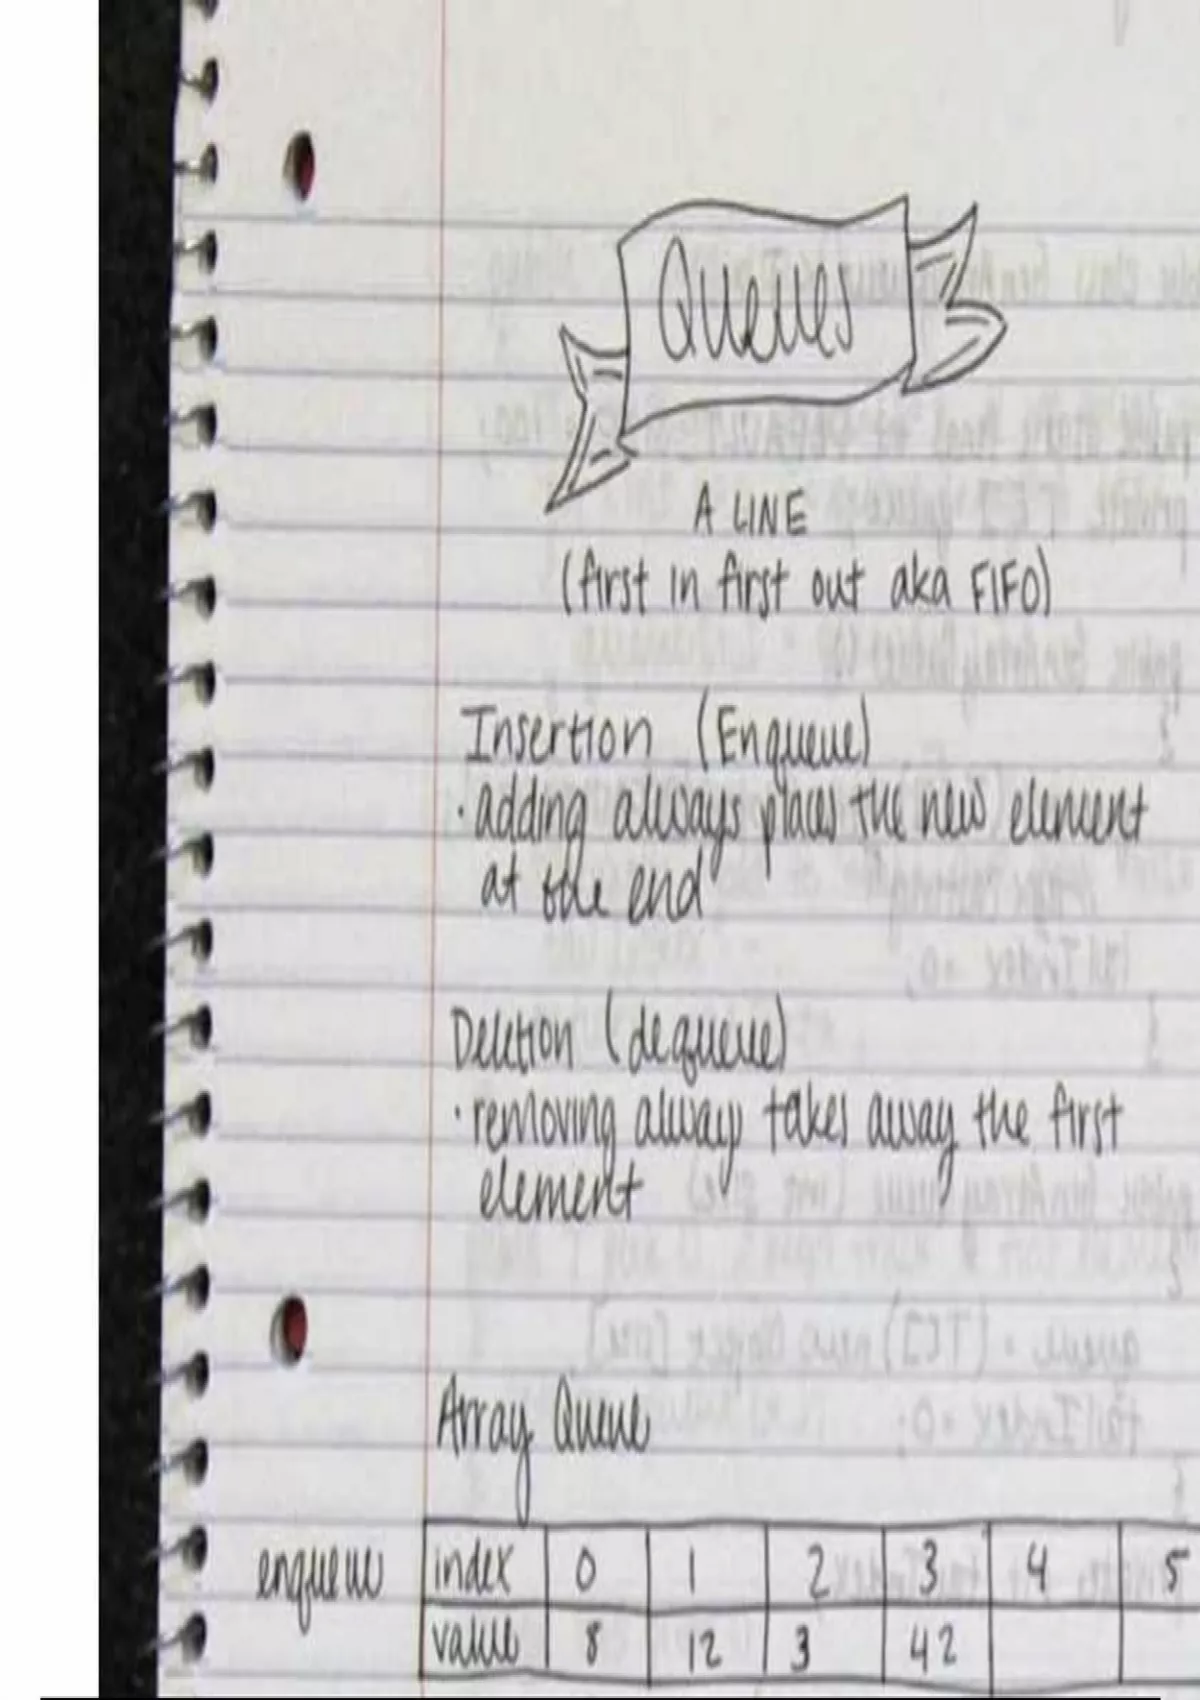 Queues
A LINE
(first in first out aka FIFO)
Insertion (Enqueue)
· adding always places the new element
at the end
Deletion (dequeue)
· removing always takes away the first
element
Array Queue
enqueue index 0 1 2 3 4 5
value 8 12 3 42